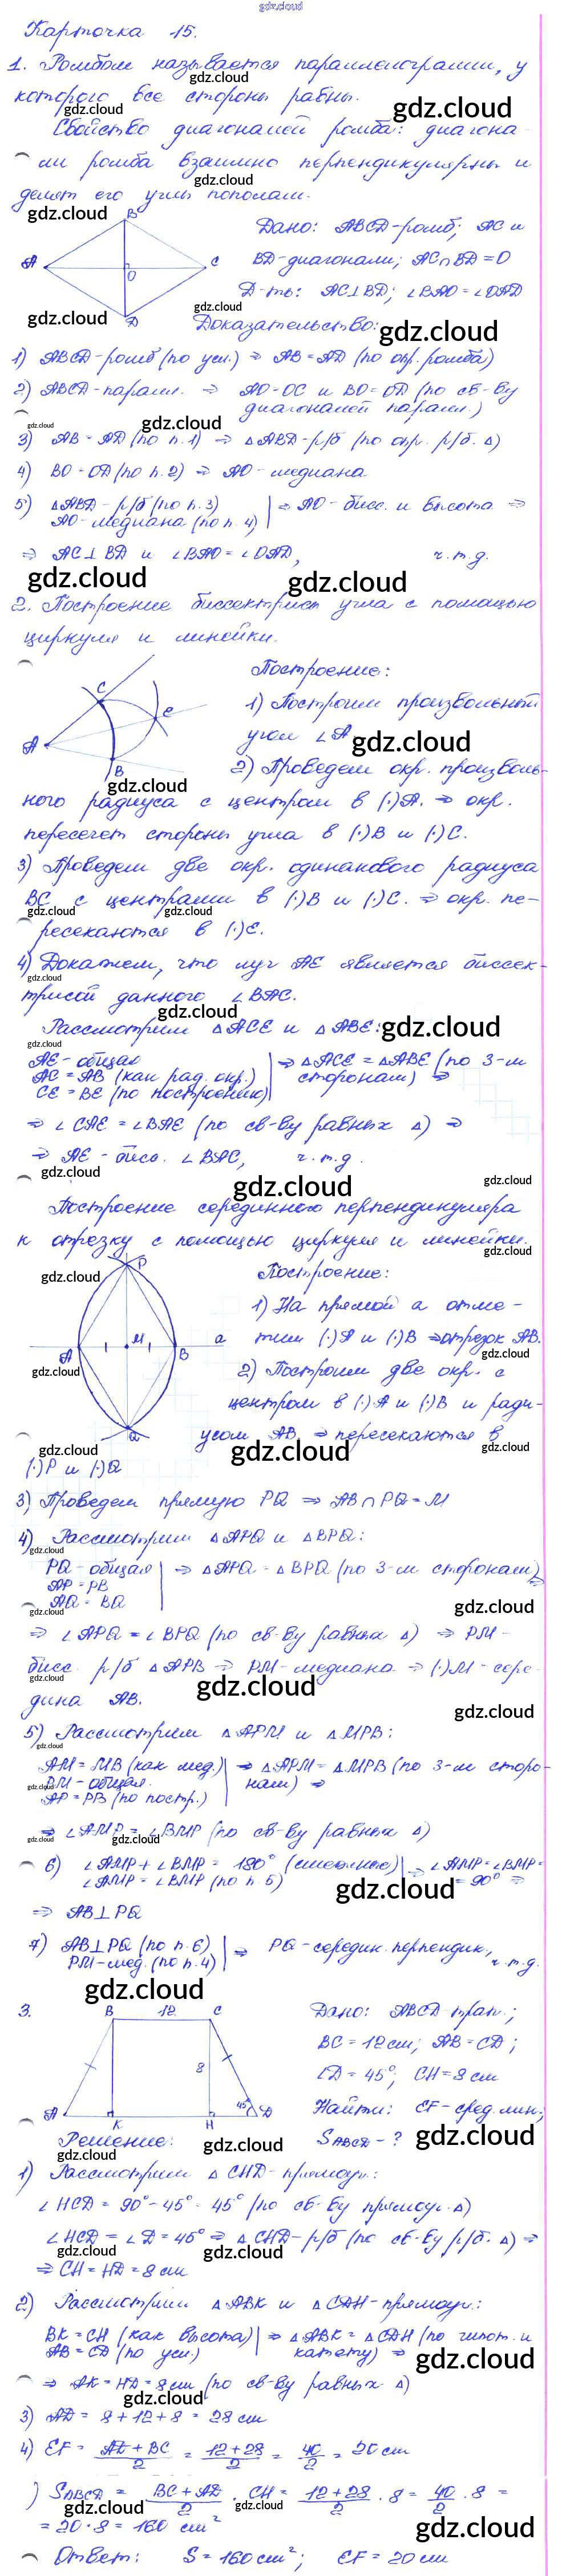 gdz.cloud
Карточка 15.
1. Ромбом называется параллелограмм, у
gdz.cloud
которого все стороны равны.
gdz.cloud
gdz.cloud
Свойство диагоналей ромба: диагона-
ли ромба взаимно перпендикулярны и
gdz.cloud
делят его углы пополам.
gdz.cloud
B
A
C
O
D
Дано: ABCD-ромб; AC и
BD-диагонали; AC∩BD=O
Д-ть: AC⊥BD; ∠BAO=∠OAD
gdz.cloud
gdz.cloud
Доказательство:
gdz.cloud
1) ABCD-ромб (по усл.) ⇒ AB=AD (по опр. ромба)
2) ABCD-паралл. ⇒ AO=OC и BO=OD (по св-ву
диагоналей паралл.)
gdz.cloud
gdz.cloud
3) AB=AD (по п.1) ⇒ △ABD-р/б (по опр. р/б. △)
4) BO=OD (по п.2) ⇒ AO-медиана
5) △ABD-р/б (по п.3) | ⇒ AO-бисс. и высота ⇒
AO-медиана (по п.4)
⇒ AC⊥BD и ∠BAO=∠OAD, ч.т.д.
gdz.cloud
gdz.cloud
2. Построение биссектрисы угла с помощью
циркуля и линейки.
C
E
A
B
Построение:
1) Построим произвольный
угол ∠A.
gdz.cloud
2) Проведем окр. произволь-
gdz.cloud
ного радиуса с центром в (·)A. ⇒ окр.
пересечет стороны угла в (·)B и (·)C.
3) Проведем две окр. одинакового радиуса
BC с центрами в (·)B и (·)C. ⇒ окр. пе-
gdz.cloud
gdz.cloud
ресекаются в (·)E.
4) Докажем, что луч AE является биссек-
gdz.cloud
трисой данного ∠BAC.
gdz.cloud
Рассмотрим △ACE и △ABE:
gdz.cloud
gdz.cloud
AE-общая | ⇒ △ACE=△ABE (по 3-м
AC=AB (как рад. окр.) | сторонам) ⇒
CE=BE (по построению)
⇒ ∠CAE=∠BAE (по св-ву равных △) ⇒
⇒ AE-бисс. ∠BAC, ч.т.д.
gdz.cloud
gdz.cloud
gdz.cloud
Построение серединного перпендикуляра
к отрезку с помощью циркуля и линейки.
gdz.cloud
P
gdz.cloud
M
A
B
a
Q
gdz.cloud
Построение:
1) На прямой a отме-
тим (·)A и (·)B ⇒ отрезок AB.
gdz.cloud
2) Построим две окр. с
центром в (·)A и (·)B и ради-
усом AB ⇒ пересекаются в
gdz.cloud
gdz.cloud
gdz.cloud
(·)P и (·)Q
3) Проведем прямую PQ ⇒ AB∩PQ=M
4) Рассмотрим △APQ и △BPQ:
gdz.cloud
PQ-общая | ⇒ △APQ=△BPQ (по 3-м сторонам) ⇒
AP=PB
AQ=BQ
gdz.cloud
gdz.cloud
⇒ ∠APQ=∠BPQ (по св-ву равных △) ⇒ PM-
бисс. р/б △APB ⇒ PM-медиана ⇒ (·)M-сере-
gdz.cloud
gdz.cloud
дина AB.
gdz.cloud
5) Рассмотрим △APM и △MPB:
gdz.cloud
AM=MB (как мед.) | ⇒ △APM=△MPB (по 3-м сторо-
PM-общая. | нам) ⇒
gdz.cloud
AP=PB (по постр.)
⇒ ∠AMP=∠BMP (по св-ву равных △)
gdz.cloud
gdz.cloud
6) ∠AMP+∠BMP=180° (смежные) | ⇒ ∠AMP=∠BMP=
∠AMP=∠BMP (по п.5) | =90° ⇒
gdz.cloud
⇒ AB⊥PQ
7) AB⊥PQ (по п.6) | ⇒ PQ-середин. перпендик.,
PM-мед. (по п.4) ч.т.д.
gdz.cloud
3.
B 12 C
8
45°
A K H D
Дано: ABCD-трап.;
BC=12см; AB=CD;
∠D=45°; CH=8см
Найти: EF-сред.лин;
SABCD-?
gdz.cloud
Решение:
gdz.cloud
1) Рассмотрим △CHD-прямоуг.:
∠HCD=90°-45°=45° (по св-ву прямоуг. △)
∠HCD=∠D=45° ⇒ △CHD-р/б (по св-ву р/б. △) ⇒
gdz.cloud
gdz.cloud
⇒ CH=HD=8см
2) Рассмотрим △ABK и △CDH-прямоуг.:
BK=CH (как высота) | ⇒ △ABK=△CDH (по гипот. и
AB=CD (по усл.) | катету) ⇒
gdz.cloud
⇒ AK=HD=8см (по св-ву равных △)
gdz.cloud
3) AD=8+12+8=28см
4) EF=(AD+BC)/2=(12+28)/2=40/2=20см
) SABCD=(BC+AD)/2·CH=(12+28)/2·8=40/2·8=
gdz.cloud
gdz.cloud
=20·8=160 см²
gdz.cloud
Ответ: S=160см²; EF=20см